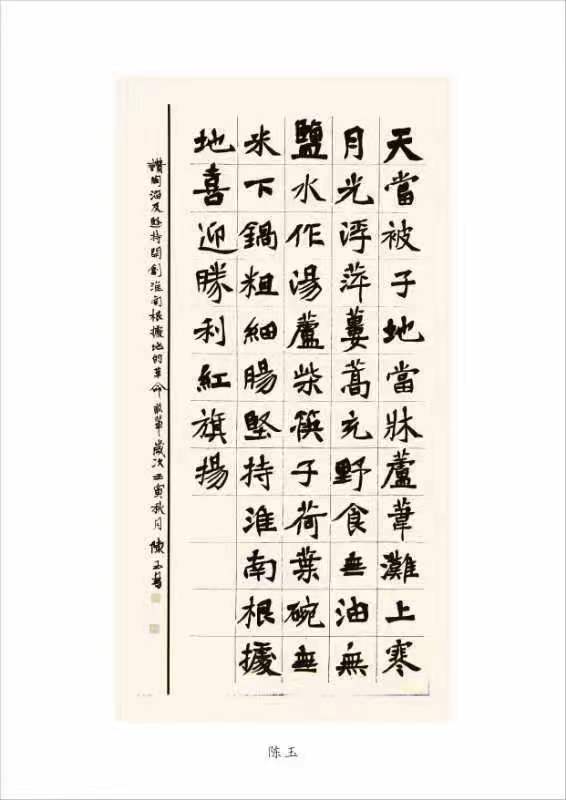 天當被子地當牀蘆葦灘上寒
月光浮萍蔞蒿充野食無油無
鹽水作湯蘆柴筷子荷葉碗無
米下鍋粗細腸堅持淮南根據
地喜迎勝利紅旗揚
讚陶涵及堅持開創淮南根據地的革命前輩歲次壬寅秋月陳玉書
陈玉